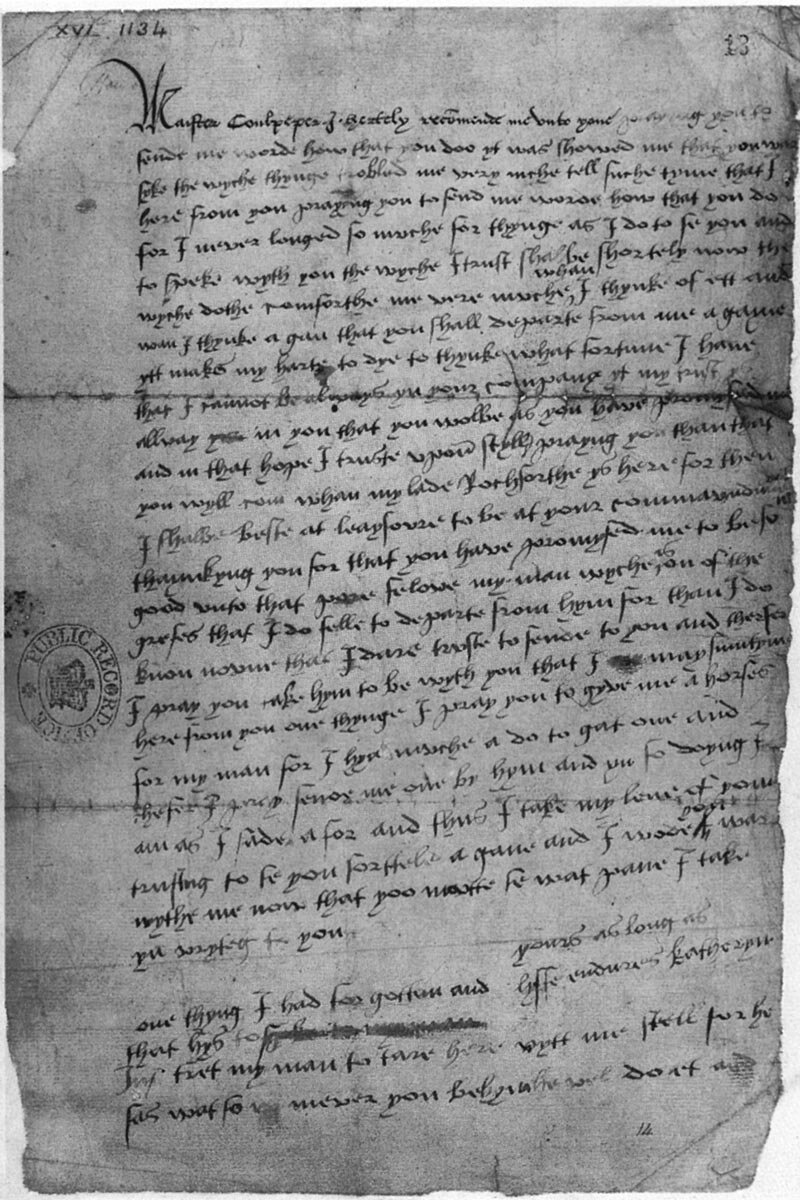 XVI 1134
13
Maister Coulpeper I hertely recomende me unto youe praying you to
sende me worde how that you doo yt was showed me that you was
syke the wyche thynge trobled me very muche tell suche tyme that I
here from you praying you to send me worde how that you do
for I never longed so muche for thynge as I do to se you and
to speke wyth you the wyche I trust shal be shortely now the
wyche dothe comforthe me verie muche whan I thynke of ett and
wan I thynke agan that you shall departe from me agaayne
ytt makes my harte to dye to thynke what fortune I have
that I cannot be always yn your company yt my trust ys
allway in you that you wolbe as you have promysed me
and in that hope I truste upon styll prayng you than that
you wyll com whan my lade Rochforthe ys here for then
I shalbe beste at leaysoure to be at your commaundment
thaynkyng you for that you have promysed me to be so
good unto that pore felowe my man wyche is on of the
grefes that I do felle to departe from hym for than I do
know noone that I dare truste to sende to you and therfor
I pray you take hym to be wyth you that I may sumtym
here from you one thynge I pray you to gyve me a horse
for my man for I hyd muche a do to gat one and
thefer I pray sende me one by hym and yn so doyng I
am as I sade afor and thus I take my leve of you
trusting to se you shorttele agane and I wode you war
wythe me now that yoo maitte se wat pane I take
yn wryteg to you
yours as long as
lyffe endures katheryn
one thyng I had forgotten and
that hys to
my man to tare here wytt me still for he
sas wat so mever you
do et and
PUBLIC RECORD OFFICE
14